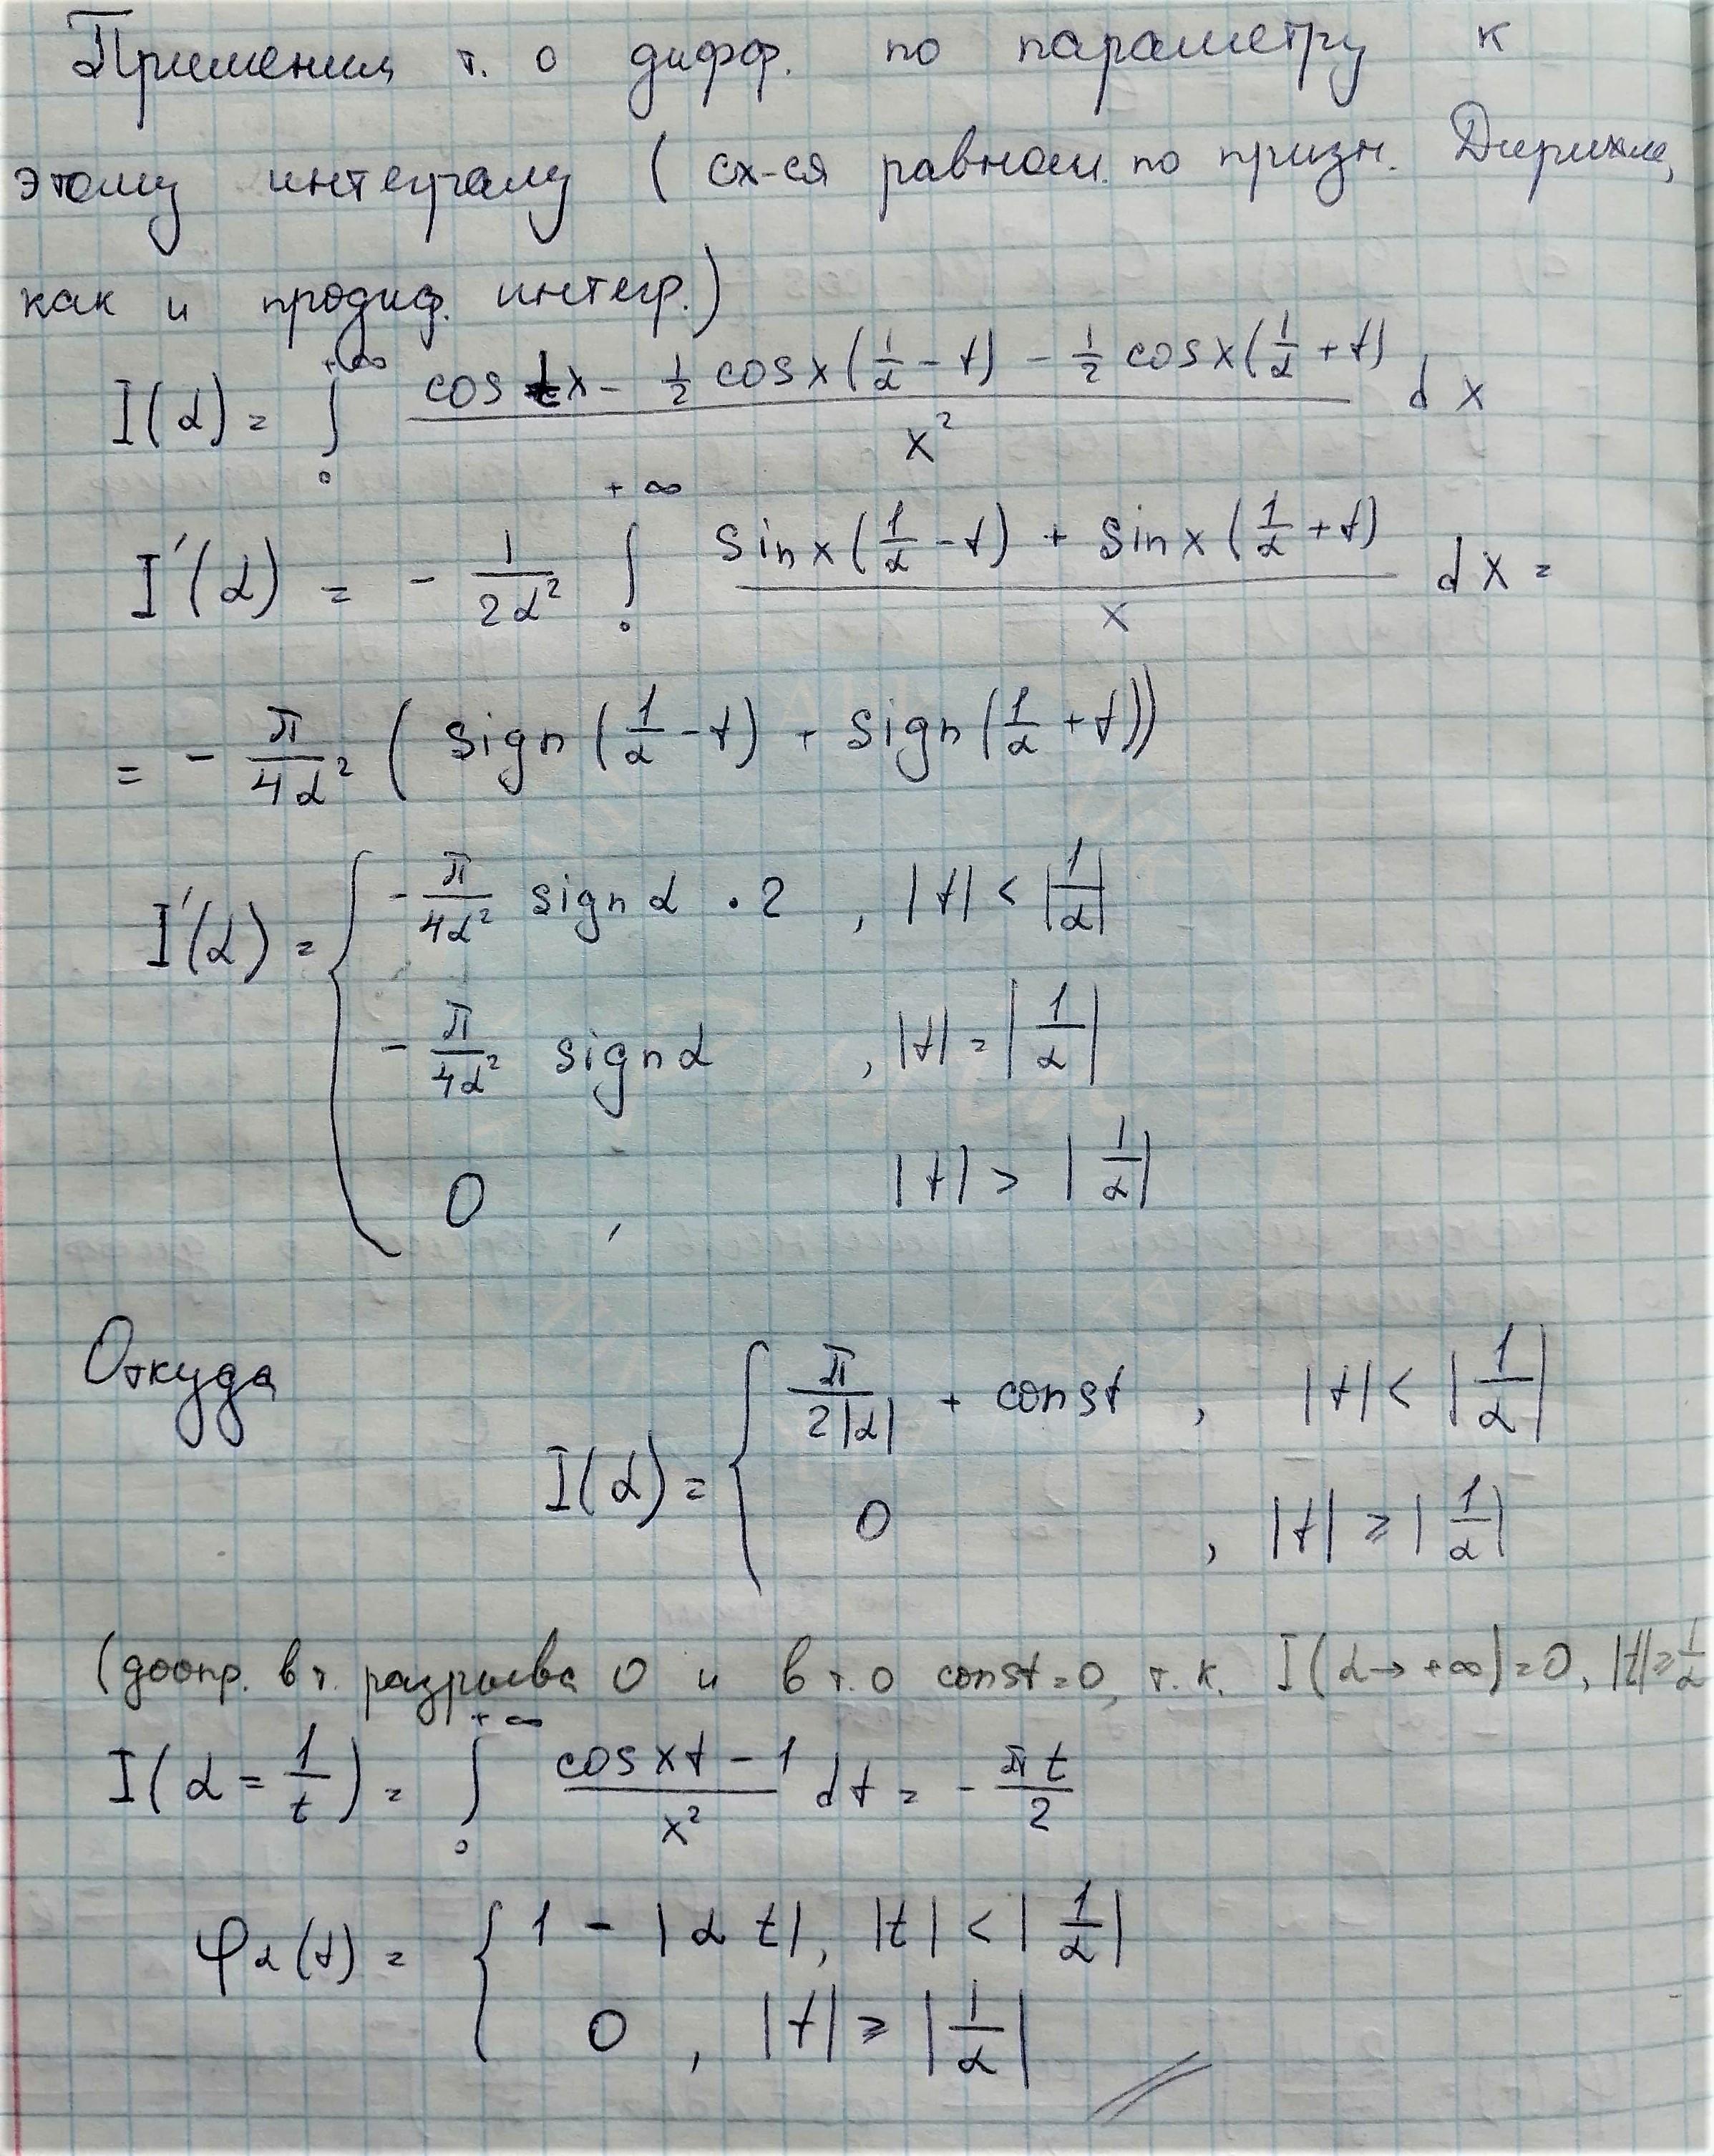 Применим т. о дифф. по параметру к
этому интегралу (сх-ся равном. по призн. Дирихле,
как и продиф. интегр.)
I(α) = ∫₀^{+∞} (cos tx - 1/2 cos x(1/α - t) - 1/2 cos x(1/α + t)) / x² dx
I'(α) = - 1/(2α²) ∫₀^{+∞} (sin x(1/α - t) + sin x(1/α + t)) / x dx =
= - π/(4α²) (sign(1/α - t) + sign(1/α + t))
I'(α) = { - π/(4α²) sign α · 2 , |t| < |1/α|
- π/(4α²) sign α , |t| = |1/α|
0 , |t| > |1/α|
Откуда
I(α) = { π/(2|α|) + const , |t| < |1/α|
0 , |t| ⩾ |1/α|
(доопр. в т. разрыва 0 и в т. 0 const = 0, т.к. I(α → +∞) = 0, |t| ⩾ 1/α
I(α = 1/t) = ∫₀^{+∞} (cos xt - 1) / x² dt = - πt/2
φα(t) = { 1 - |α t|, |t| < |1/α|
0 , |t| ⩾ |1/α|